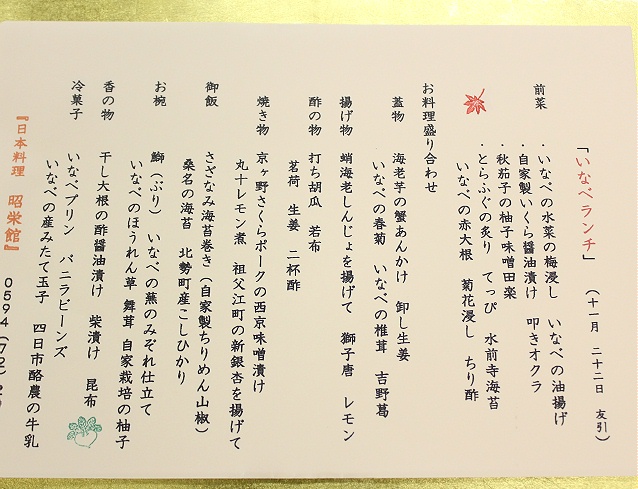 「いなべランチ」 （十一月 二十二日 友引）
前菜 ・いなべの水菜の梅浸し いなべの油揚げ
・自家製いくら醤油漬け 叩きオクラ
・秋茄子の柚子味噌田楽
・とらふぐの炙り てっぴ 水前寺海苔
いなべの赤大根 菊花浸し ちり酢
お料理盛り合わせ
蓋物 海老芋の蟹あんかけ 卸し生姜
いなべの春菊 いなべの椎茸 吉野葛
揚げ物 蛸海老しんじょを揚げて 獅子唐 レモン
酢の物 打ち胡瓜 若布
茗荷 生姜 二杯酢
焼き物 京ヶ野さくらポークの西京味噌漬け
丸十レモン煮 祖父江町の新銀杏を揚げて
御飯 さざなみ海苔巻き（自家製ちりめん山椒）
桑名の海苔 北勢町産こしひかり
お椀 鰤（ぶり） いなべの蕪のみぞれ仕立て
いなべのほうれん草 舞茸 自家栽培の柚子
香の物 干し大根の酢醤油漬け 柴漬け 昆布
冷菓子 いなべプリン バニラビーンズ
いなべの産みたて玉子 四日市酪農の牛乳
『日本料理 昭栄館』
0594（72）2